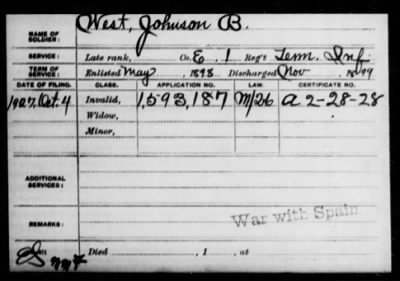 NAME OF SOLDIER: West, Johnson B.
SERVICE: Late rank, Co. E, 1 Reg't Tenn. Inf.
TERM OF SERVICE: Enlisted May, 1898 Discharged Nov, 1899
DATE OF FILING. CLASS. APPLICATION NO. LAW. CERTIFICATE NO.
1927, Oct. 4 Invalid, 1,593,187 M/26 A 2-28-28
Widow,
Minor,
ADDITIONAL SERVICES:
REMARKS: War with Spain
Died , 1 , at